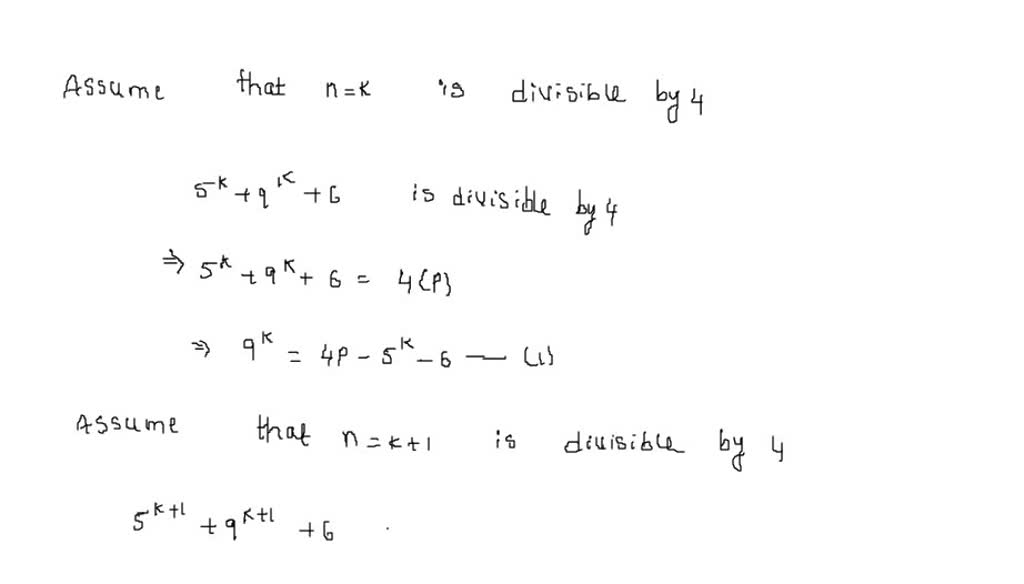 Assume that n=k is divisible by 4
5^k + 9^k + 6 is divisible by 4
⇒ 5^k + 9^k + 6 = 4{P}
⇒ 9^k = 4P - 5^k - 6 — (1)
Assume that n=k+1 is divisible by 4
5^{k+1} + 9^{k+1} + 6